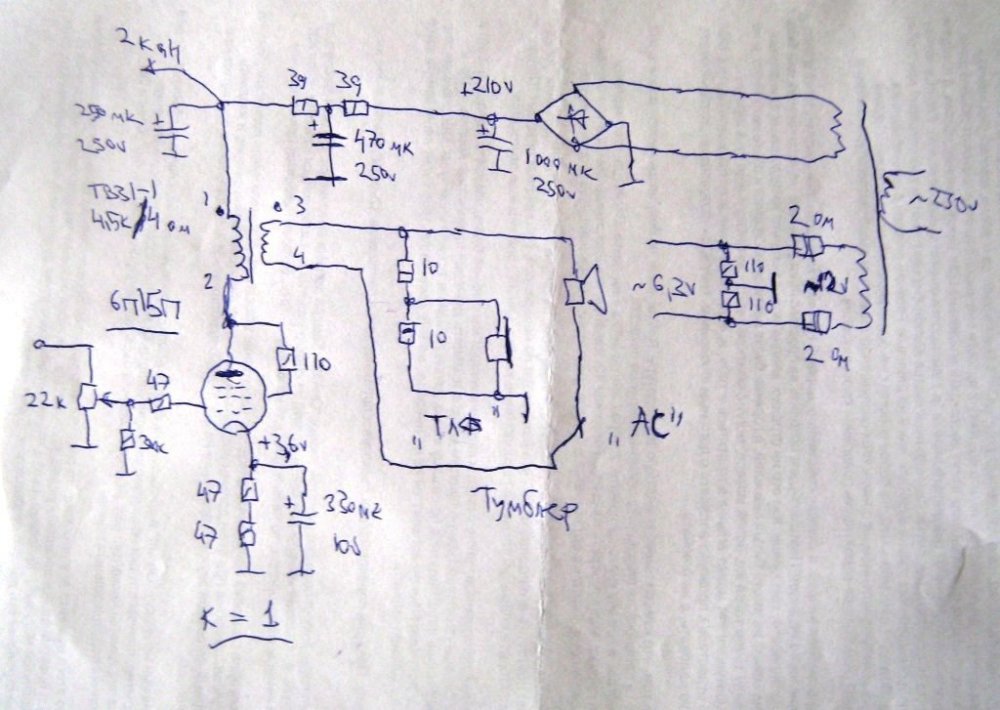 2 кан
39 39
+210V
250 мк
250V
+
+
470 мк
250V
+
1000 мк
250V
ТВЗ1-1
4,5К/4 ом
1
3
2
4
~230V
2 ом
110
~6,3V
~12V
110
2 ом
6П15П
10
110
10
47
22к
30к
„ТЛФ"
„АС"
+3,6V
47
+
330мк
47
10V
Тумблер
К = 1